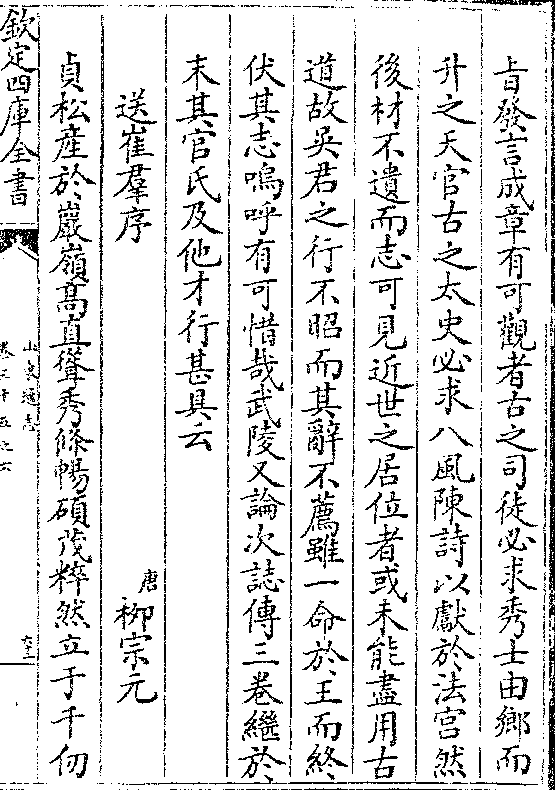 旨發言成章有可觀者古之司徒必求秀士由鄉而
升之天官古之太史必求八風陳詩以獻於法宫然
後材不遺而志可見近世之居位者或未能盡用古
道故吳君之行不昭而其辭不薦雖一命於王而終
伏其志嗚呼有可惜哉武陵又論次誌傳三卷繼於
末其官氏及他才行甚具云
送崔羣序
唐 柳宗元
貞松産於巖嶺高直聳秀條暢碩茂粹然立于千仞
欽定四庫全書
山東通志
卷三十五之六